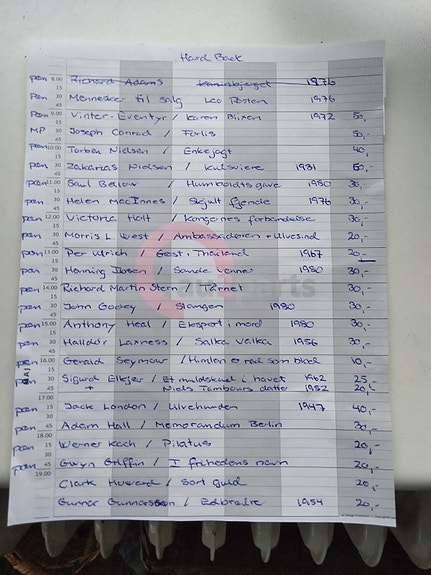 Hard Back
pen 8.00 Richard Adams Kaninbjerget 1976
pen Mennesker til salg Leo Rosten 1976
pen 9.00 Vinter-Eventyr / Karen Blixen 1972 50,-
MP 30 Joseph Conrad / Forlis 50,-
pen 10.00 Torben Nielsen / Enkejagt 40,-
pen 30 Zakarias Nielsen / Kulsviere 1931 60,-
pen 11.00 Saul Bellow / Humboldts gave 1980 30,-
pen 30 Helen MacInnes / Skjult fjende 1976 30,-
pen 12.00 Victoria Holt / Kongernes forbandelse 30,-
pen 30 Morris L West / Ambassadøren + Ulvesind 20,-
pen 13.00 Per Ulrich / Gæst i Thailand 1967 20,-
pen 30 Henning Ipsen / Sande venner 1980 30,-
pen 14.00 Richard Martin Stern / Tårnet 30,-
pen 30 John Godey / Slangen 1980 30,-
pen 15.00 Anthony Heal / Eksport i mord 1980 30,-
pen 30 Halldór Laxness / Salka Valka 1956 30,-
pen 16.00 Gerald Seymour / Himlen er rød som blod 10,-
pen 30 Sigurd Elkjer / Et muldskud i havet 1962 25
pen 45 + Niels Tambours datter 1952 20,-
17.00
pen 15 Jack London / Ulvehunden 1947 40,-
pen 45 Adam Hall / Memorandum Berlin 30,-
18.00
pen 15 Werner Koch / Pilatus 20,-
pen 45 Gwyn Griffin / I frihedens navn 20,-
19.00
Clark Howard / Sort guld 20,-
Gunnar Gunnarsson / Edbrødre 1954 20,-